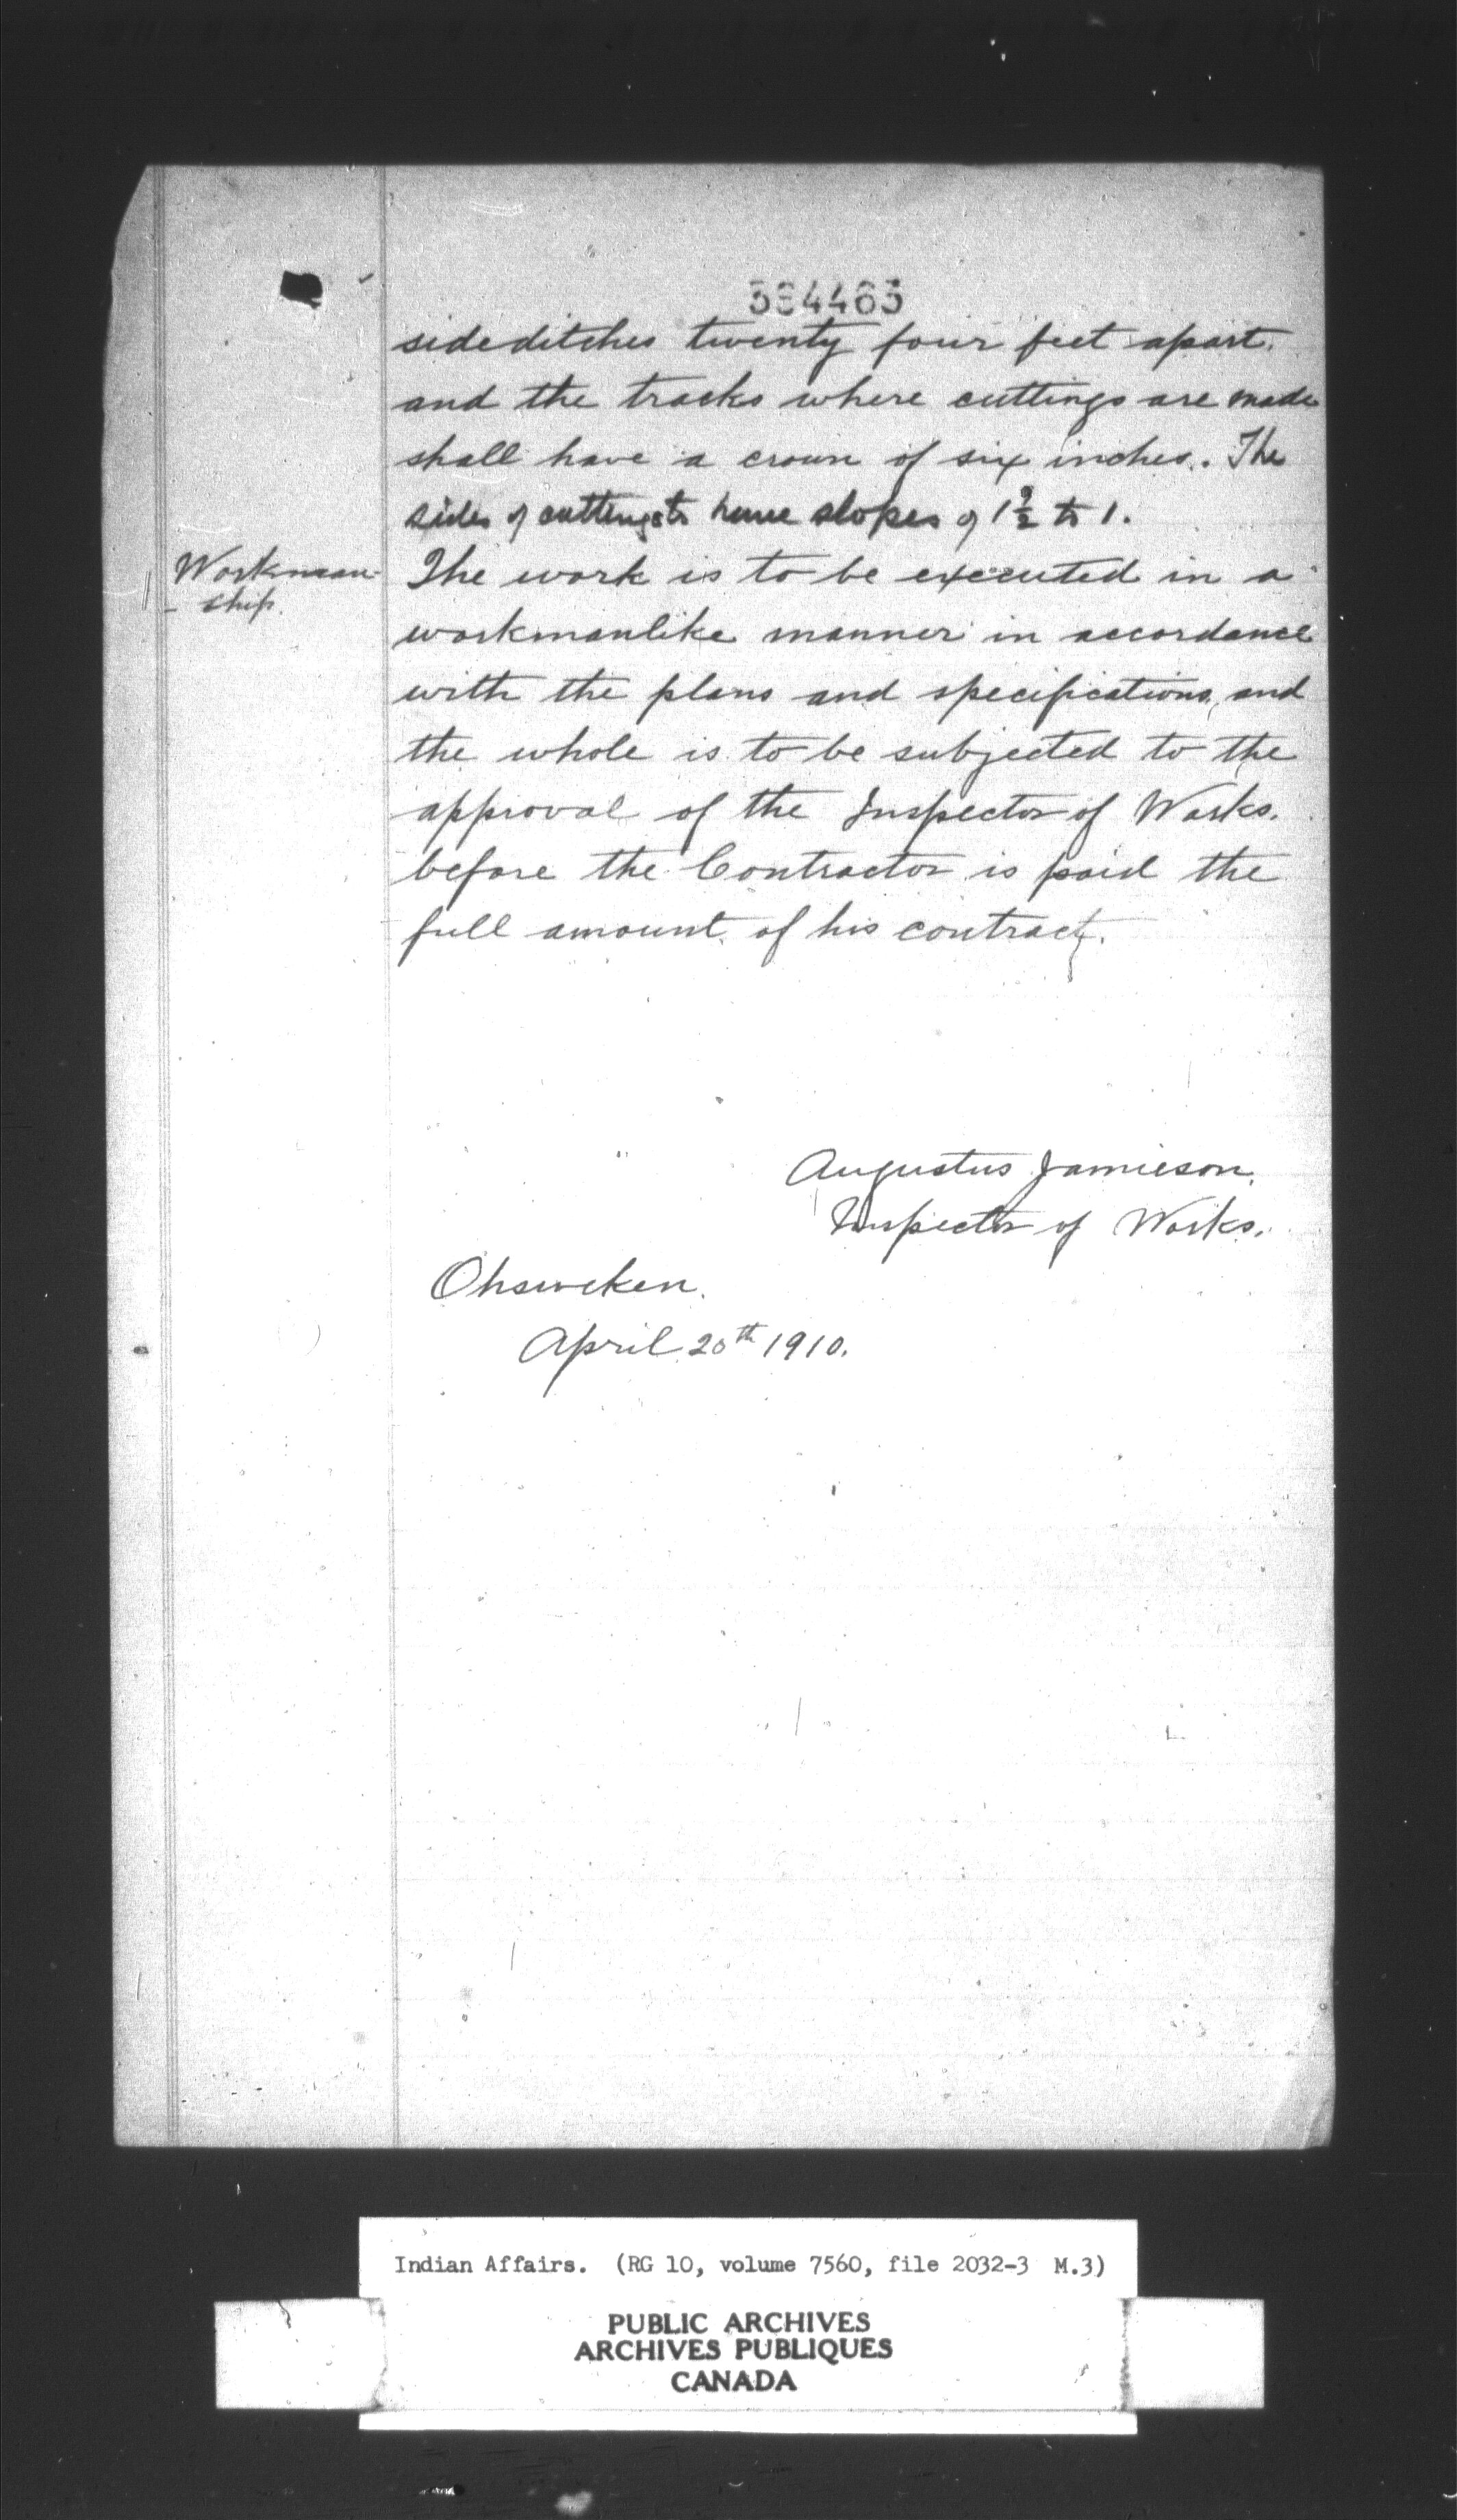 384463
sideditches twenty four feet apart.
and the tracks where cuttings are made
shall have a crown of six inches. The
sides of cuttings to have slopes of 1 1/2 to 1.
Workman-
- ship.
The work is to be executed in a
workmanlike manner in accordance
with the plans and specifications, and
the whole is to be subjected to the
approval of the Inspector of Works.
before the Contractor is paid the
full amount of his contract.
Augustus Jamieson.
Inspector of Works.
Ohsweken.
April 20th 1910.
Indian Affairs. (RG 10, volume 7560, file 2032-3 M.3)
PUBLIC ARCHIVES
ARCHIVES PUBLIQUES
CANADA